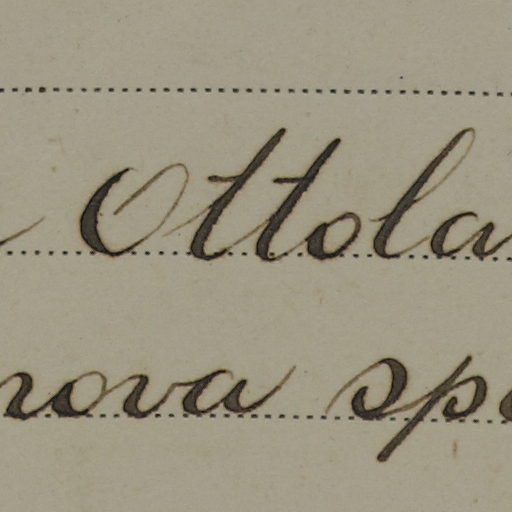 Ottola
nova sp